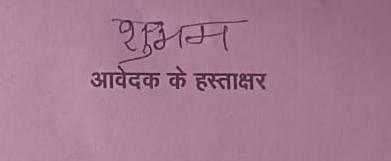 शुभम
आवेदक के हस्ताक्षर